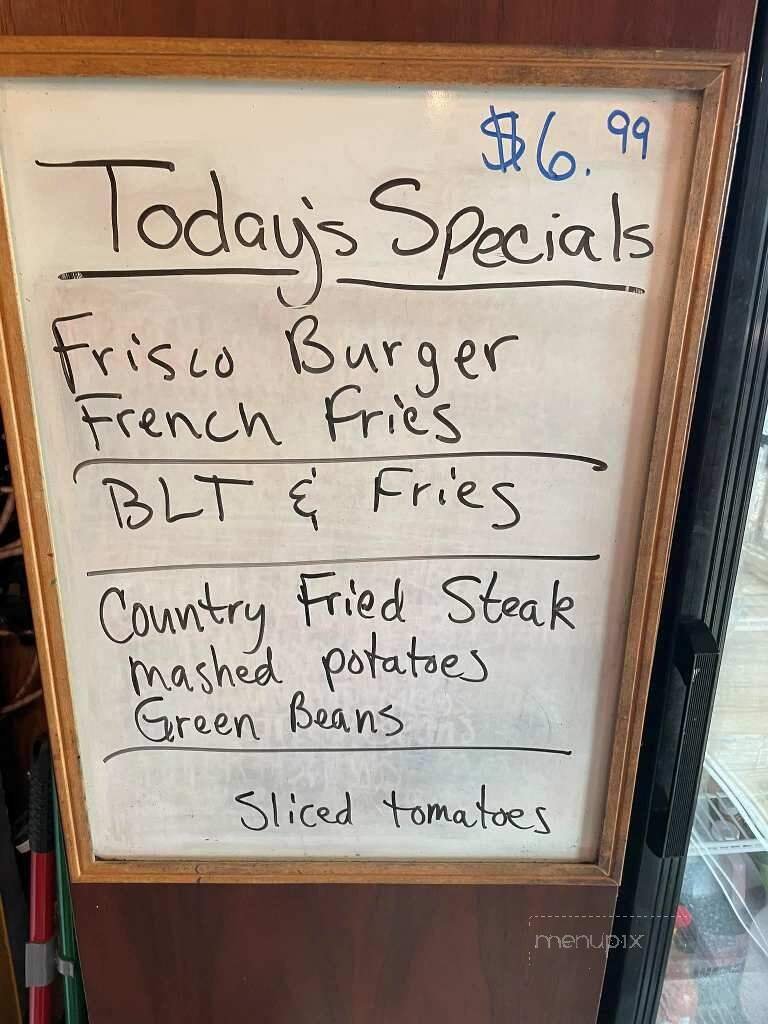 $6.99
Today's Specials
Frisco Burger
French Fries
BLT & Fries
Country Fried Steak
mashed potatoes
Green Beans
Sliced tomatoes
menupix